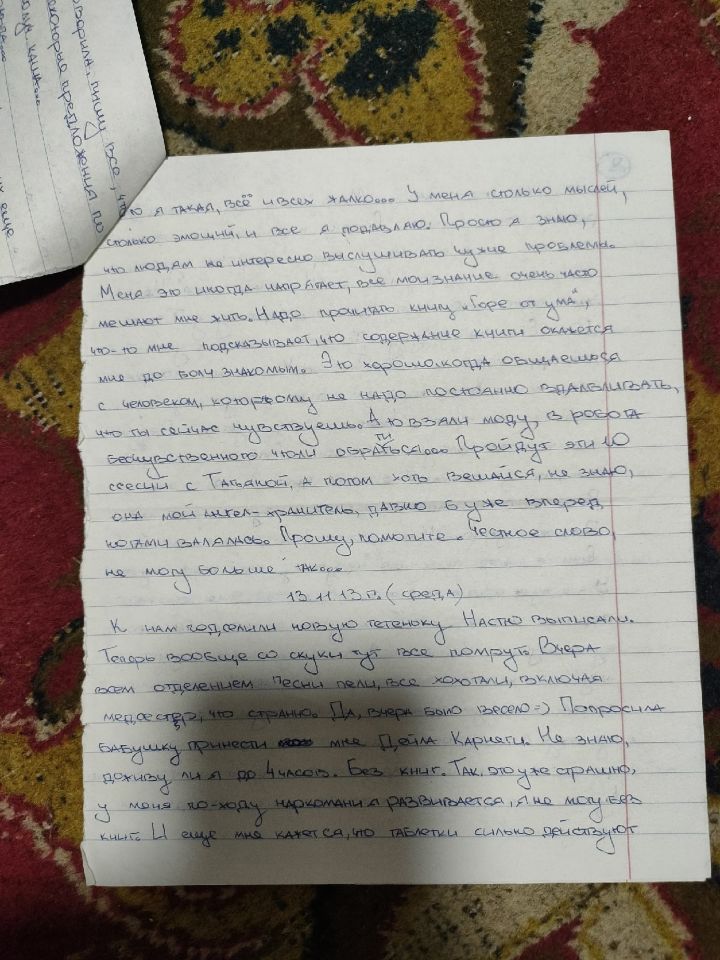 оворила, пишу все, что
екоторые предложения по
ому каша...
еще
ю я такая, всё и всех жалко... У меня столько мыслей,
столько эмоций, и все я подавляю. Просто я знаю,
что людям не интересно выслушивать чужие проблемы.
Меня это иногда напрягает, все мои знание очень часто
мешают мне жить. Надо прочитать книгу „Горе от ума",
что-то мне подсказывает, что содержание книги окажется
мне до боли знакомым. Это хорошо, когда общаешься
с человеком, которому не надо постоянно вдалбливать,
что ты сейчас чувствуешь. А то взяли моду, в робота
бесчувственного чтоли обратиться... Пройдут эти 10
сессий с Татьяной, а потом хоть вешайся, не знаю,
она мой ангел-хранитель, давно б уже вперед
ногами валялась. Прошу, помогите. Честное слово,
не могу больше так...
13.11.13 г. (среда)
К нам подселили новую тетеньку. Настю выписали.
Теперь вообще со скуки тут все помрут. Вчера
всем отделением песни пели, все хохотали, включая
медсестер, что странно. Да, вчера было весело =) Попросила
бабушку принести мне Дейла Карнеги. Не знаю,
доживу ли я до 4 часов. Без книг. Так, это уже страшно,
у меня по-ходу наркомания развивается, я не могу без
книг. И еще мне кажется, что таблетки сильно действуют